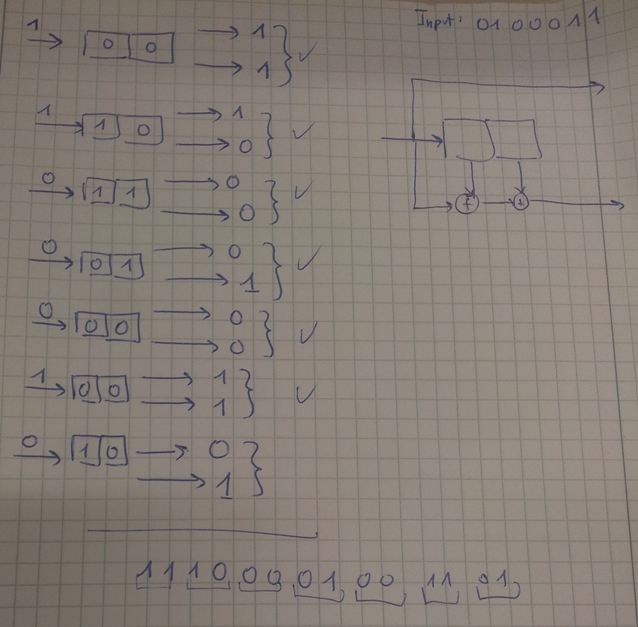 Input: 01 000 11
1 0 0 1
1
1 1 0 1
0
0 1 1 0
0
0 0 1 0
1
0 0 0 0
0
1 0 0 1
1
0 1 0 0
1
11 10 00 01 00 11 01